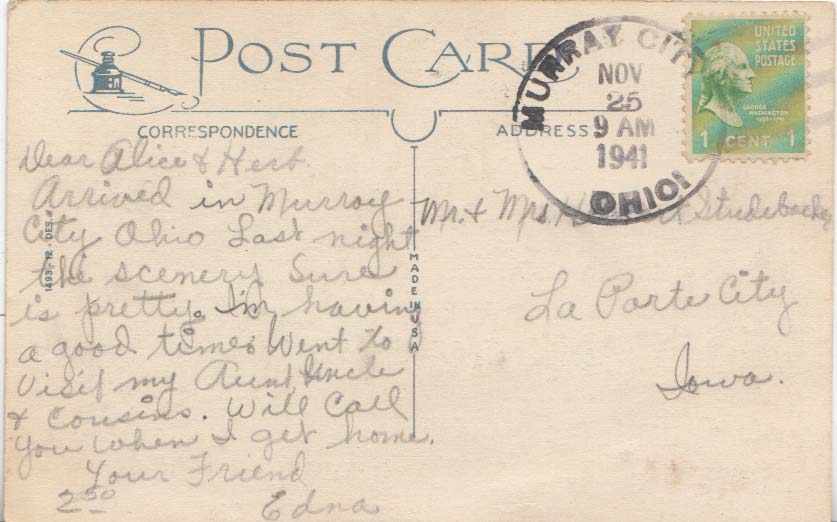 POST CARD
CORRESPONDENCE
ADDRESS
MURRAY CITY
NOV
25
9 AM
1941
OHIO
UNITED
STATES
POSTAGE
GEORGE
WASHINGTON
1 CENT 1
Dear Alice & Herb.
Arrived in Murray
City Ohio Last night
the scenery Sure
is pretty. Im having
a good time. Went to
Visit my Aunt Uncle
& Cousins. Will Call
You When I get home.
Your Friend
Edna
2.50
1493-12-DES.
MADE IN USA
Mr. & Mrs. Studebacker
La Porte City
Iowa.